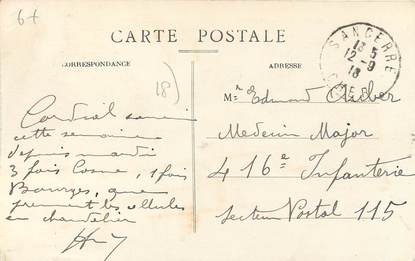 6+
CARTE POSTALE
SANCERRE
13 5
12 - 9
18
CHER
CORRESPONDANCE
ADRESSE
18)
Mr Edmond
Cordial
cette semaine
depuis mardi
3 fois Cosne, 1 fois
Bourges, que
prennent les
en chandelier
Medecin Major
416e Infanterie
Secteur Postal 115